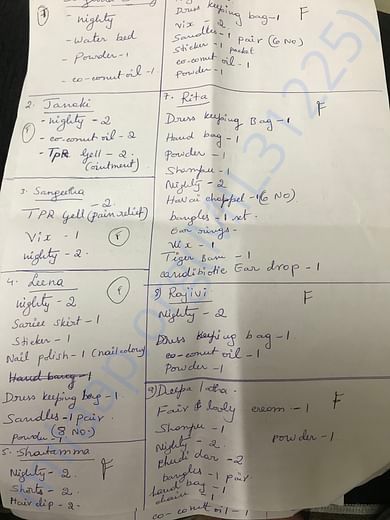 - Nighty
- Water bed
- Powder - 1
- co-conut oil - 1
2. Janaki
- Nighty - 2
- co-conut oil - 2
- TPR Gell - 2
(ointment)
3. Sangeetha
- 2
TPR Gell (pain relief)
Vix - 1
Nighty - 2
4. Leena
Nighty - 2
Saries Skirt - 1
Sticker - 1
Nail polish - 1 (nail colour)
Hand bang - 1
Dress keeping bag - 1
Sandles - 1 pair
(8 No.)
Powder - 1
5. Shantamma
Nighty - 2
F
Shorts - 2
Hair clip - 2
Dress keeping bag - 1
F
Vix - 2
Sandles - 1 pair (6 No)
Sticker - 1 packet
co-conut oil - 1
Powder - 1
7. Rita
F
Dress keeping Bag - 1
Hand bag - 1
Powder - 1
Shampu - 1
Nighty - 2
Havai chappel - 1 (6 NO)
bangles - 1 set.
Ear rings -
Vix - 1
Tiger Bam - 1
candibiotic Ear drop - 1
8) Rajivi
F
Nighty - 2
Dress keeping bag - 1
co-conut oil - 1
Powder - 1
9) Deepa latha.
Fair & lovly cream - 1
F
Shampu - 1
Powder - 1
Nighty - 2
Chudi dar - 2
bangles - 1 pair
hand bag - 1
chain - 1
co-conut oil - 1